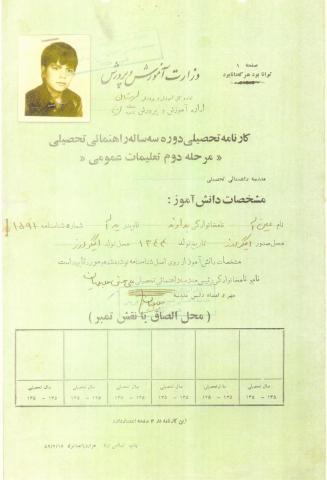 صفحه ۱
توانا بود هر که دانا بود
وزارت آموزش و پرورش
اداره کل آموزش و پرورش لرستان
اداره آموزش و پرورش
کارنامه تحصیلی دوره سه ساله راهنمائی تحصیلی
« مرحله دوم تعلیمات عمومی »
مدرسه راهنمائی تحصیلی
مشخصات دانش آموز:
نام نام خانوادگی نام پدر شماره شناسنامه ۱۵۹۱
محل صدور الیگودرز تاریخ تولد ۱۳۴۴ محل تولد الیگودرز
مشخصات دانش آموز از روی اصل شناسنامه نوشته شده و مورد تأیید است
نام و نام خانوادگی رئیس مدرسه راهنمائی تحصیلی
مهر و امضاء رئیس مدرسه
( محل الصاق یا نقش تمبر )
سال تحصیلی سال تحصیلی سال تحصیلی سال تحصیلی سال تحصیلی سال تحصیلی
۱۳۵ - ۱۳۵ ۱۳۵ - ۱۳۵ ۱۳۵ - ۱۳۵ ۱۳۵ - ۱۳۵ ۱۳۵ - ۱۳۵ ۱۳۵ - ۱۳۵
(این کارنامه در ۴ صفحه اعتبار دارد)
چاپ